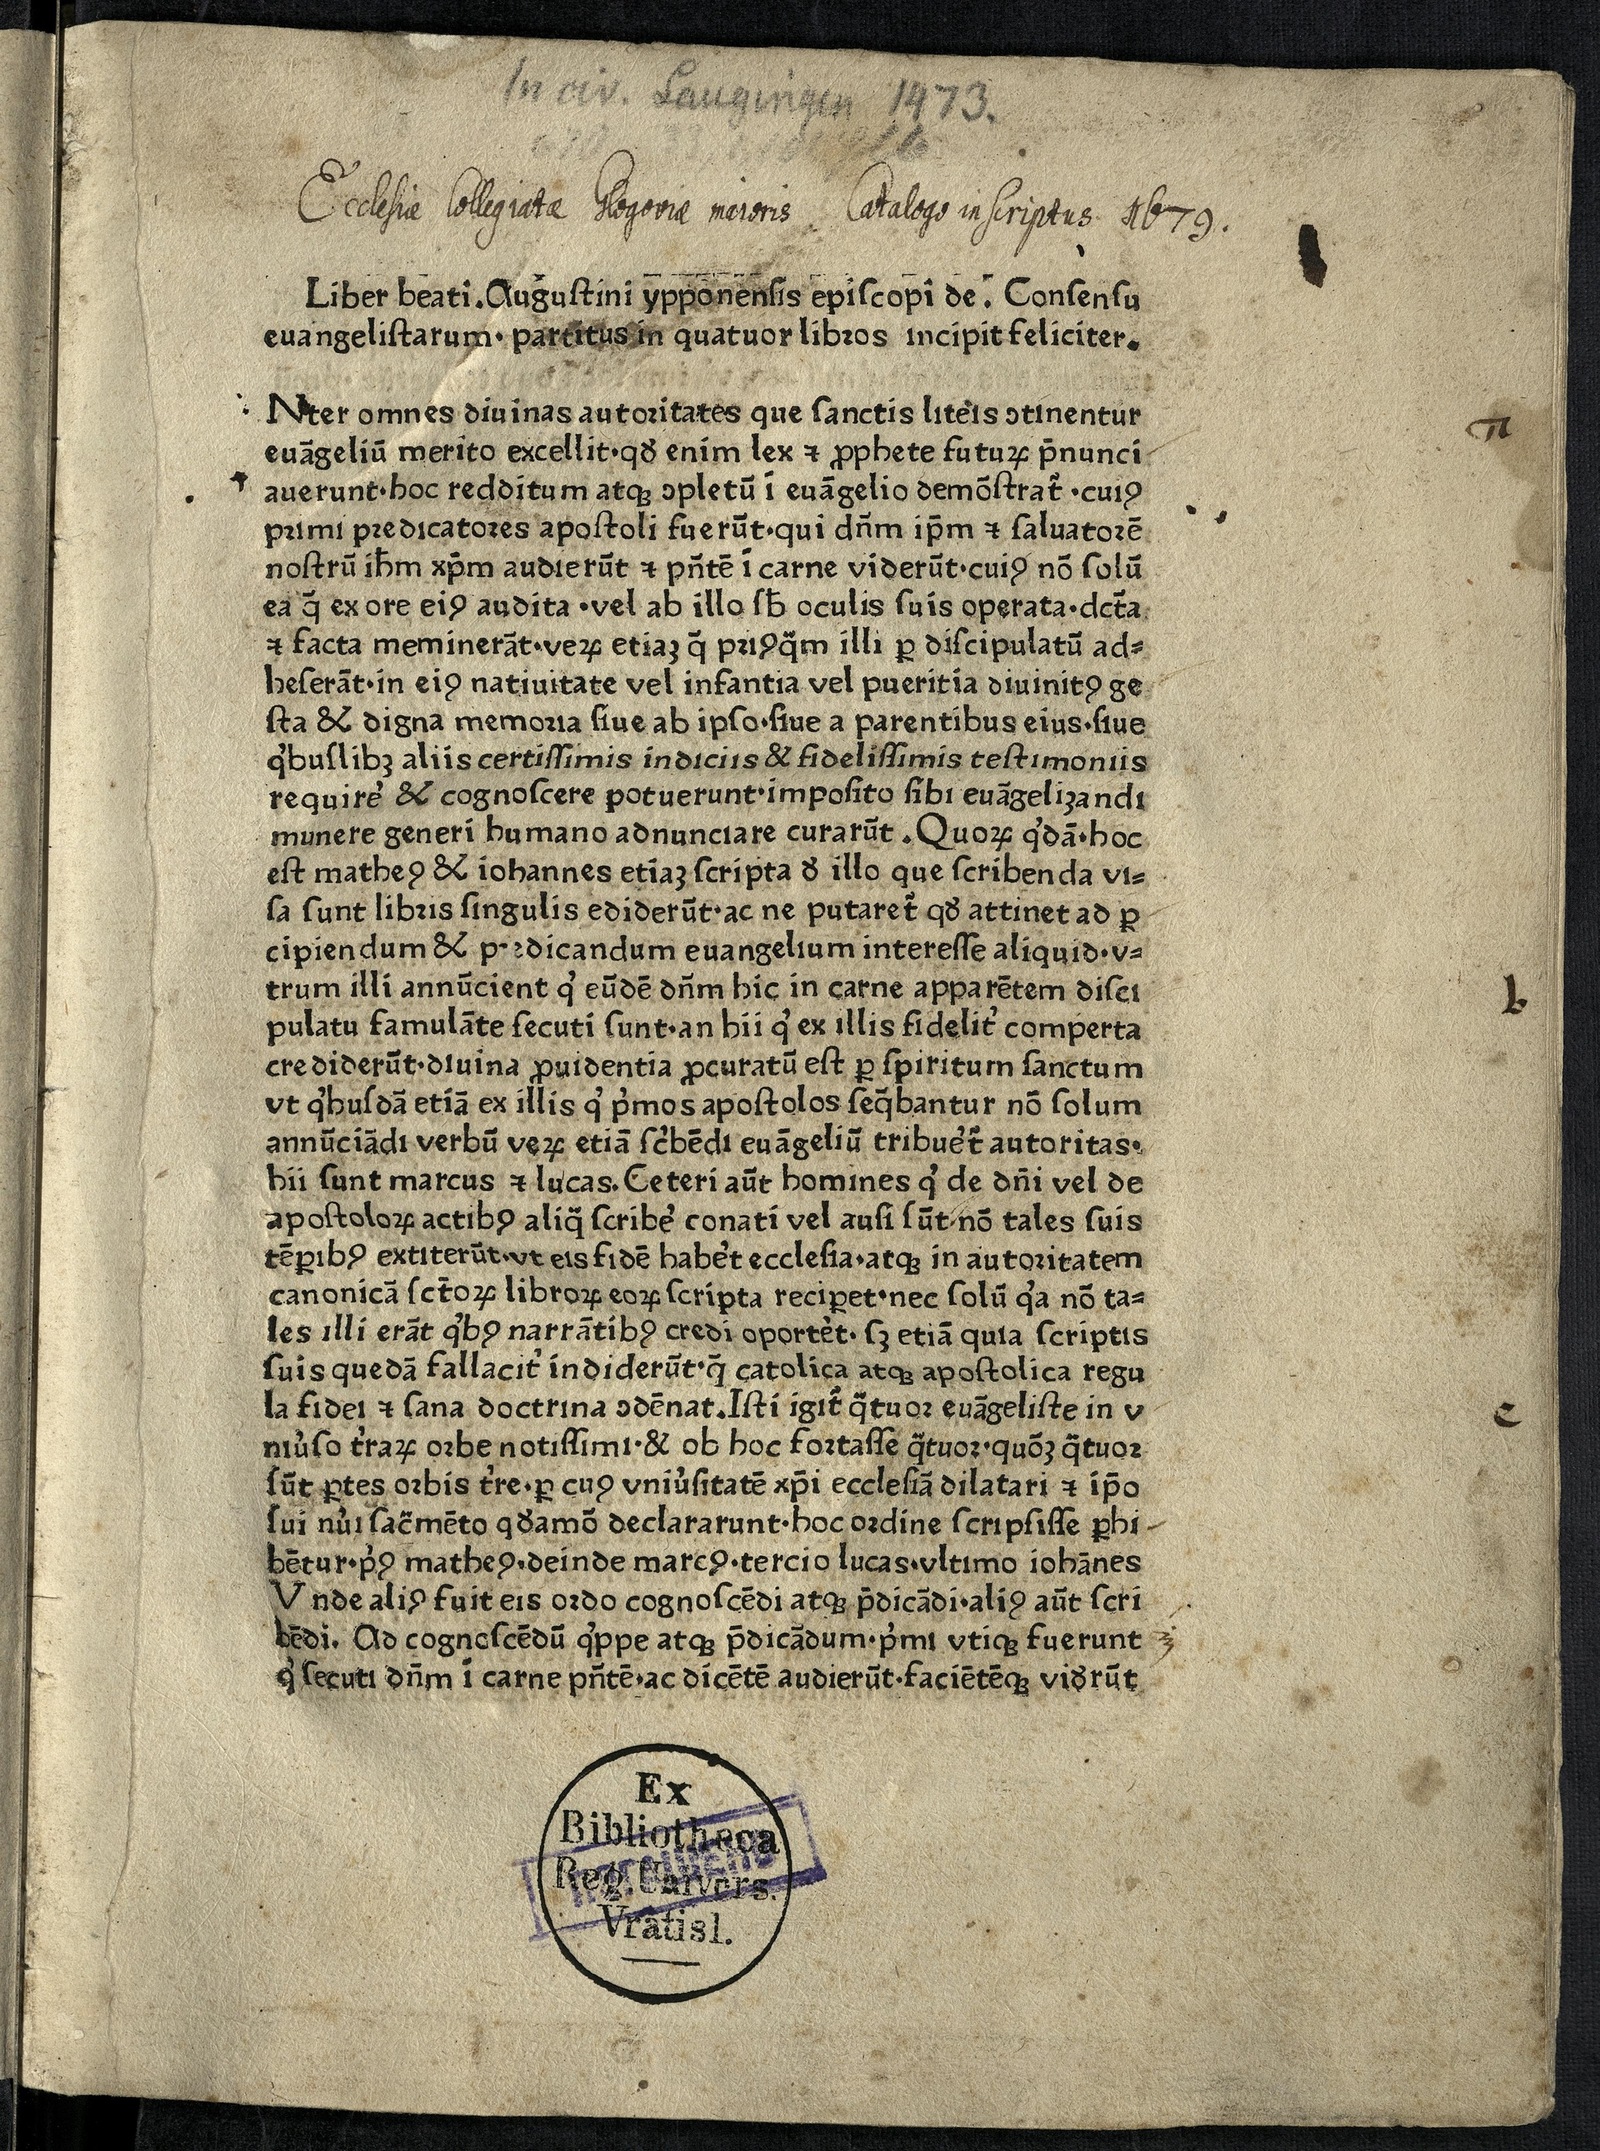 In civ. Laugingen 1473.
Ecclesiæ Collegiatæ Glogoviæ maioris Catalogo inscriptus 1679.
Liber beati. Augustini ypponensis episcopi de. Consensu
euangelistarum· partitus in quatuor libros incipit feliciter.
Nter omnes diuinas autoritates que sanctis literis ↄtinentur
euãgeliũ merito excellit·qđ enim lex ⁊ ꝓphete futuꝝ p̄nunci
auerunt·hoc redditum atqꝫ ↄpletũ ĩ euãgelio demõstrat᷑·cuiꝰ
primi predicatores apostoli fuerũt·qui dñm ip̄m ⁊ saluatorẽ
nostrũ ihm̄ xp̄m audierũt ⁊ pñtẽ ĩ carne viderũt·cuiꝰ nõ solũ
ea q̄ ex ore eiꝰ audita·vel ab illo sb̄ oculis suis operata·dcta̅
⁊ facta meminerãt·veꝝ etiaꝫ q̄ priꝰq̄m illi ꝑ discipulatũ ad⸗
heserãt·in eiꝰ natiuitate vel infantia vel pueritia diuinitꝰ ge
sta & digna memoria siue ab ipso·siue a parentibus eius·siue
q᷒buslibꝫ aliis certissimis indiciis & fidelissimis testimoniis
require᷒ & cognoscere potuerunt·imposito sibi euãgelizandi
munere generi humano adnunciare curarũt. Quoꝝ q᷒dã·hoc
est matheꝰ & iohannes etiaꝫ scripta đ illo que scribenda vi⸗
sa sunt libris singulis ediderũt·ac ne putaret᷑ qđ attinet ad ꝑ
cipiendum & predicandum euangelium interesse aliquid·v⸗
trum illi annũcient q᷒ eũdẽ dñm hic in carne apparẽtem disci
pulatu famulãte secuti sunt·an hii q᷒ ex illis fidelit᷒ comperta
crediderũt·diuina ꝓuidentia ꝓcuratũ est ꝑ spiritum sanctum
vt q᷒busdã etiã ex illis q᷒ p᷒mos apostolos seq̄bantur nõ solum
annũciãdi verbũ veꝝ etiã sc᷒bẽdi euãgeliũ tribue᷒t᷑ autoritas·
hii sunt marcus ⁊ lucas. Ceteri aũt homines q᷒ de dñi vel de
apostoloꝝ actibꝰ aliq̄ scribe᷒ conati vel ausi sũt nõ tales suis
tẽꝑibꝰ extiterũt·vt eis fidẽ habe᷒t ecclesia·atqꝫ in autoritatem
canonicã sct̄oꝝ libroꝝ eoꝝ scripta reciꝑet·nec solũ q᷒a nõ ta⸗
les illi erãt q᷒bꝰ narrãtibꝰ credi oporte᷒t·sꝫ etiã quia scriptis
suis quedã fallacit᷒ indiderũt·q̄ catolica atqꝫ apostolica regu
la fidei ⁊ sana doctrina ↄdẽnat. Isti igit᷑ q̄tuor euãgeliste in v
niu᷒so t᷒raꝝ orbe notissimi·& ob hoc fortasse q̄tuor·quõꝫ q̄tuor
sũt ꝑtes orbis t᷒re·ꝑ cuꝰ vniu᷒sitatẽ xp̄i ecclesiã dilatari ⁊ ip̄o
sui nu᷒i sac̄mẽto qđamõ declararunt·hoc ordine scripsisse ꝑhi
bẽtur·p᷒ꝰ matheꝰ·deinde marcꝰ·tercio lucas·vltimo iohãnes
Vnde aliꝰ fuit eis ordo cognoscẽdi atqꝫ p̄dicãdi·aliꝰ aũt scri
bẽdi. Ad cognoscẽdũ q᷒ppe atqꝫ p̄dicãdum·p᷒mi vtiqꝫ fuerunt
q᷒ secuti dñm ĩ carne pñtẽ·ac dicẽtẽ audierũt·faciẽtẽqꝫ viđrũt
b
c
Ex
Bibliotheca
Reg. Univers.
Vratisl.